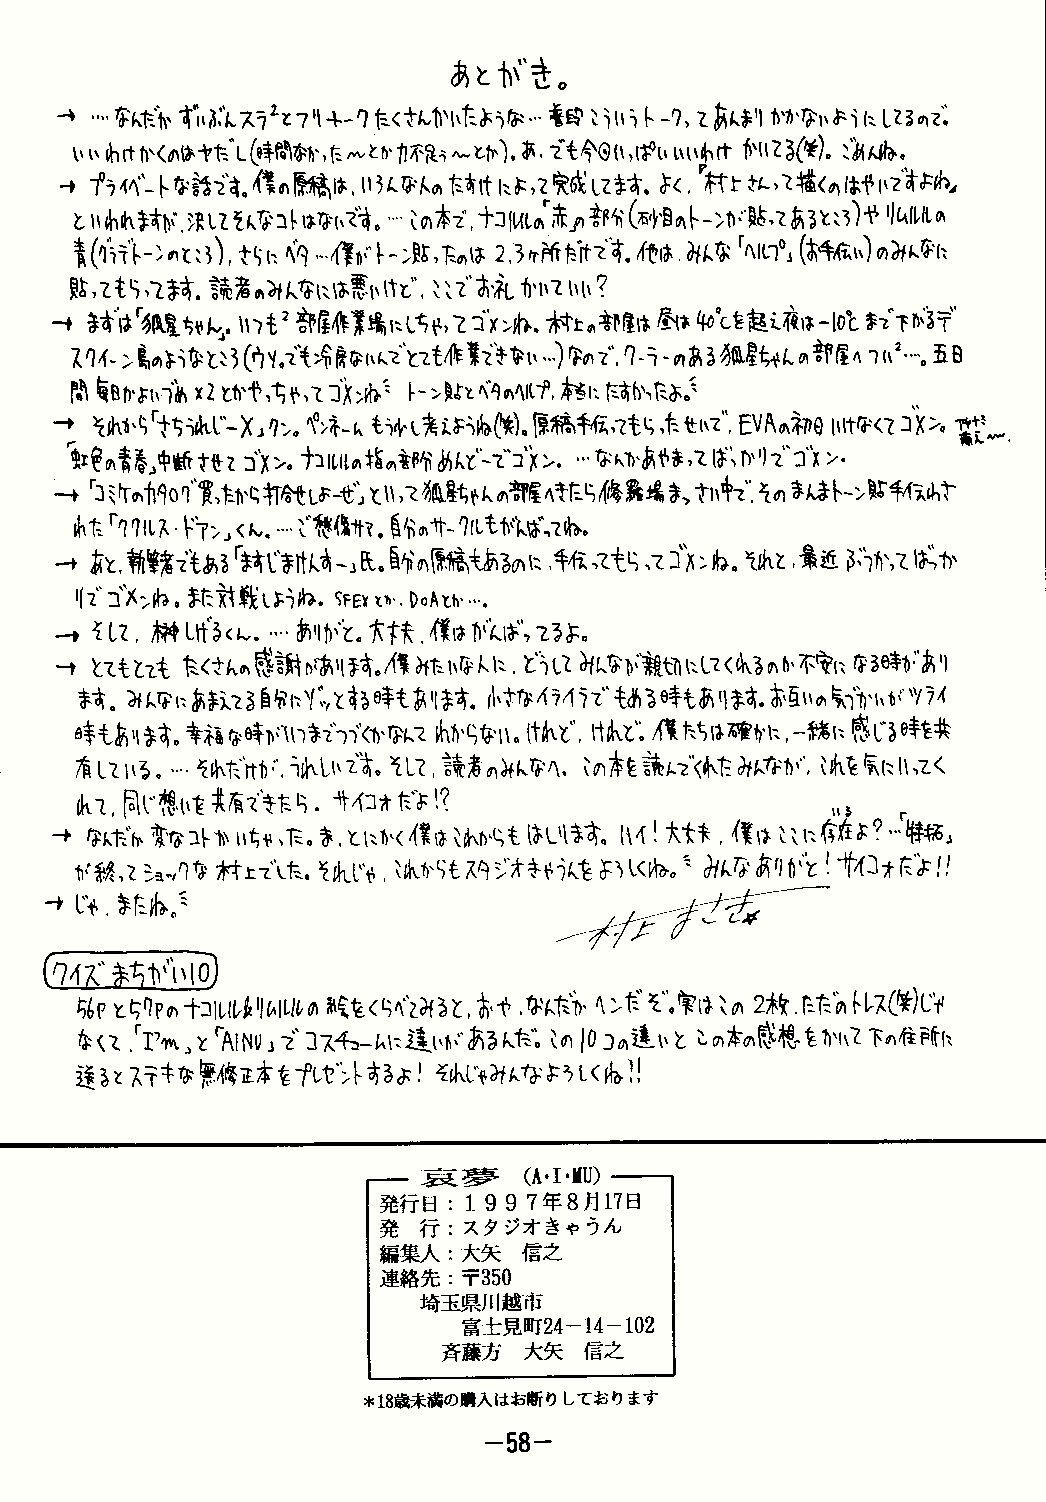 あとがき。
→ ‥‥なんだか ずいぶんスラ²とフリートークたくさんかいたような… 普段こういうトークってあんまりかかないようにしてるので。
いいわけかくのはヤだし(時間なかった〜とか力不足ぅ〜とか)。あ、でも今回いっぱいいいわけ かいてる(笑)。ごめんね。
→ プライベートな話です。僕の原稿は、いろんな人のたすけによって完成してます。よく、「村上さんって描くのはやいですよね」
といわれますが、決してそんなコトはないです。…この本で、ナコルルの「赤」の部分(砂目のトーンが貼ってあるところ)やリムルルの
青(グラデトーンのところ)、さらにベタ…僕がトーン貼ったのは2、3ヶ所だけです。他は、みんな「ヘルプ」(お手伝い)のみんなに
貼ってもらってます。読者のみんなには悪いけど、ここでお礼かいていい?
→ まずは「狐星ちゃん」。いつも² 部屋作業場にしちゃってゴメンね。村上の部屋は昼は40℃を超え夜は-10℃まで下がるデ
スクイーン島のようなところ(ウソ。でも冷房ないんでとても作業できない…)なので、クーラーのある狐星ちゃんの部屋へつい²…。五日
間毎日かよいづめ×2とかやっちゃってゴメンね トーン貼とベタのヘルプ、本当にたすかったよ。
→ それから「さちうれじーX」クン。ペンネームもう少し考えようね(笑)。原稿手伝ってもらったせいで、EVAの初日いけなくてゴメン。
「虹色の青春」中断させてゴメン。ナコルルの指の部分めんどーでゴメン。…なんかあやまってばっかりでゴメン。
→ 「コミケのカタログ買ったから打合せしよーぜ」といって狐星ちゃんの部屋へきたら修羅場まっさい中で、そのまんまトーン貼手伝わさ
れた「ククルス・ドアン」くん。…ご愁傷サマ。自分のサークルもがんばってね。
→ あと、執筆者でもある「ますじまけんすー」氏。自分の原稿もあるのに、手伝ってもらってゴメンね。それと、最近ぶつかってばっか
りでゴメンね。また対戦しようね。SFEXとか、DOAとか…。
→ そして、榊しげるくん。…ありがと。大丈夫、僕はがんばってるよ。
→ とてもとても たくさんの感謝があります。僕みたいな人に、どうしてみんなが親切にしてくれるのか不安になる時があり
ます。みんなにあまえてる自分にゾッとする時もあります。小さなイライラでもめる時もあります。お互いの気づかいがツライ
時もあります。幸福な時がいつまでつづくかなんてわからない。けれど、けれど。僕たちは確かに、一緒に感じる時を共
有している。…それだけが、うれしいです。そして、読者のみんなへ。この本を読んでくれたみんなが、これを気にいってく
れて、同じ想いを共有できたら。サイコォだよ!?
→ なんだか変なコトかいちゃった。ま、とにかく僕はこれからもはしります。ハイ!大丈夫、僕はここに存在よ?…「特捜」
が終ってショックな村上でした。それじゃ、これからもスタジオきゃうんをよろしくね。 みんなありがと!サイコォだよ!!
→ じゃ、またね。
村上まさき
クイズ まちがい10
56Pと57Pのナコルル&リムルルの絵をくらべてみると、おや、なんだかヘンだぞ。実はこの2枚、ただのトレス(笑)じゃ
なくて、「I'm」と「AINU」でコスチュームに違いがあるんだ。この10コの違いとこの本の感想をかいて下の住所に
送るとステキな無修正本をプレゼントするよ! それじゃみんなよろしくね!!
哀夢 (A・I・MU)
発行日:1997年8月17日
発 行:スタジオきゃうん
編集人:大矢 信之
連絡先:〒350
埼玉県川越市
富士見町24−14−102
斉藤方 大矢 信之
*18歳未満の購入はお断りしております
−58−